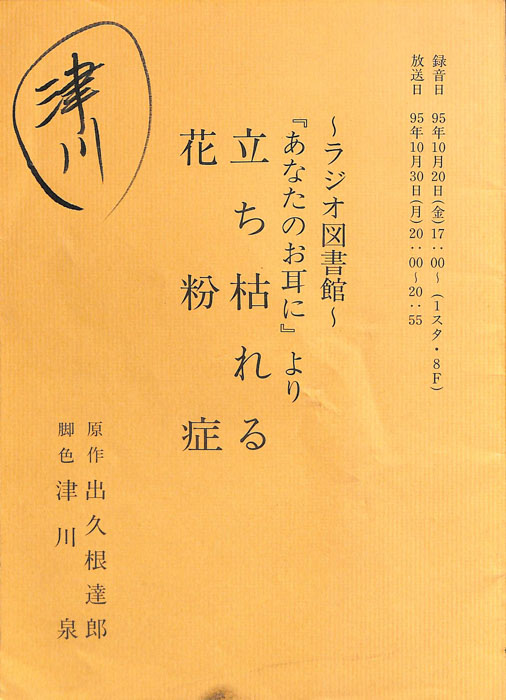 録音日 95年10月20日(金)17:00~(1スタ・8F)
放送日 95年10月30日(月)20:00~20:55
~ラジオ図書館~
『あなたのお耳に』より
立ち枯れる
花粉症
原作 出久根達郎
脚色 津川 泉
津川